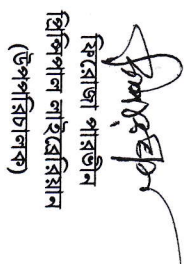 ফিরোজা পারভীন
প্রিন্সিপাল লাইব্রেরিয়ান
(উপপরিচালক)